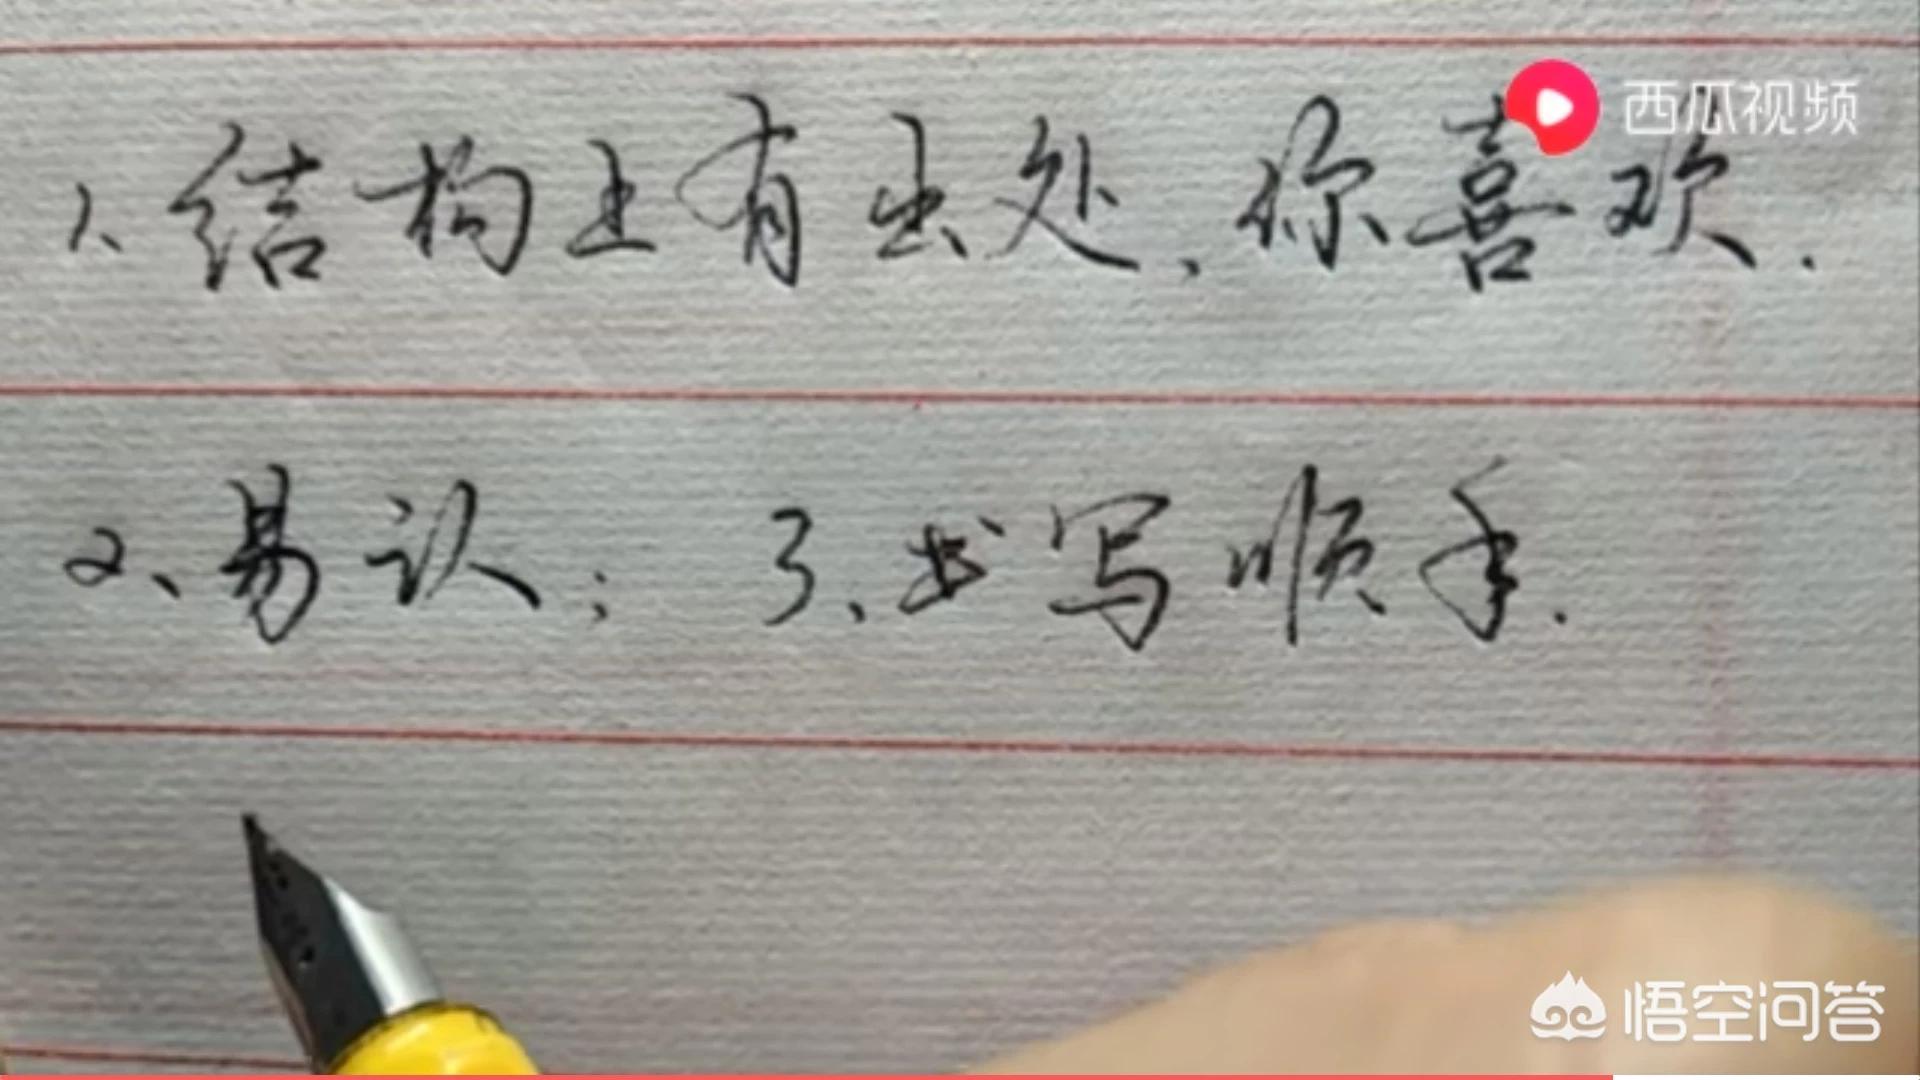 西瓜视频
1、结构上有出处,你喜欢.
2、易认; 3、书写顺手.
悟空问答